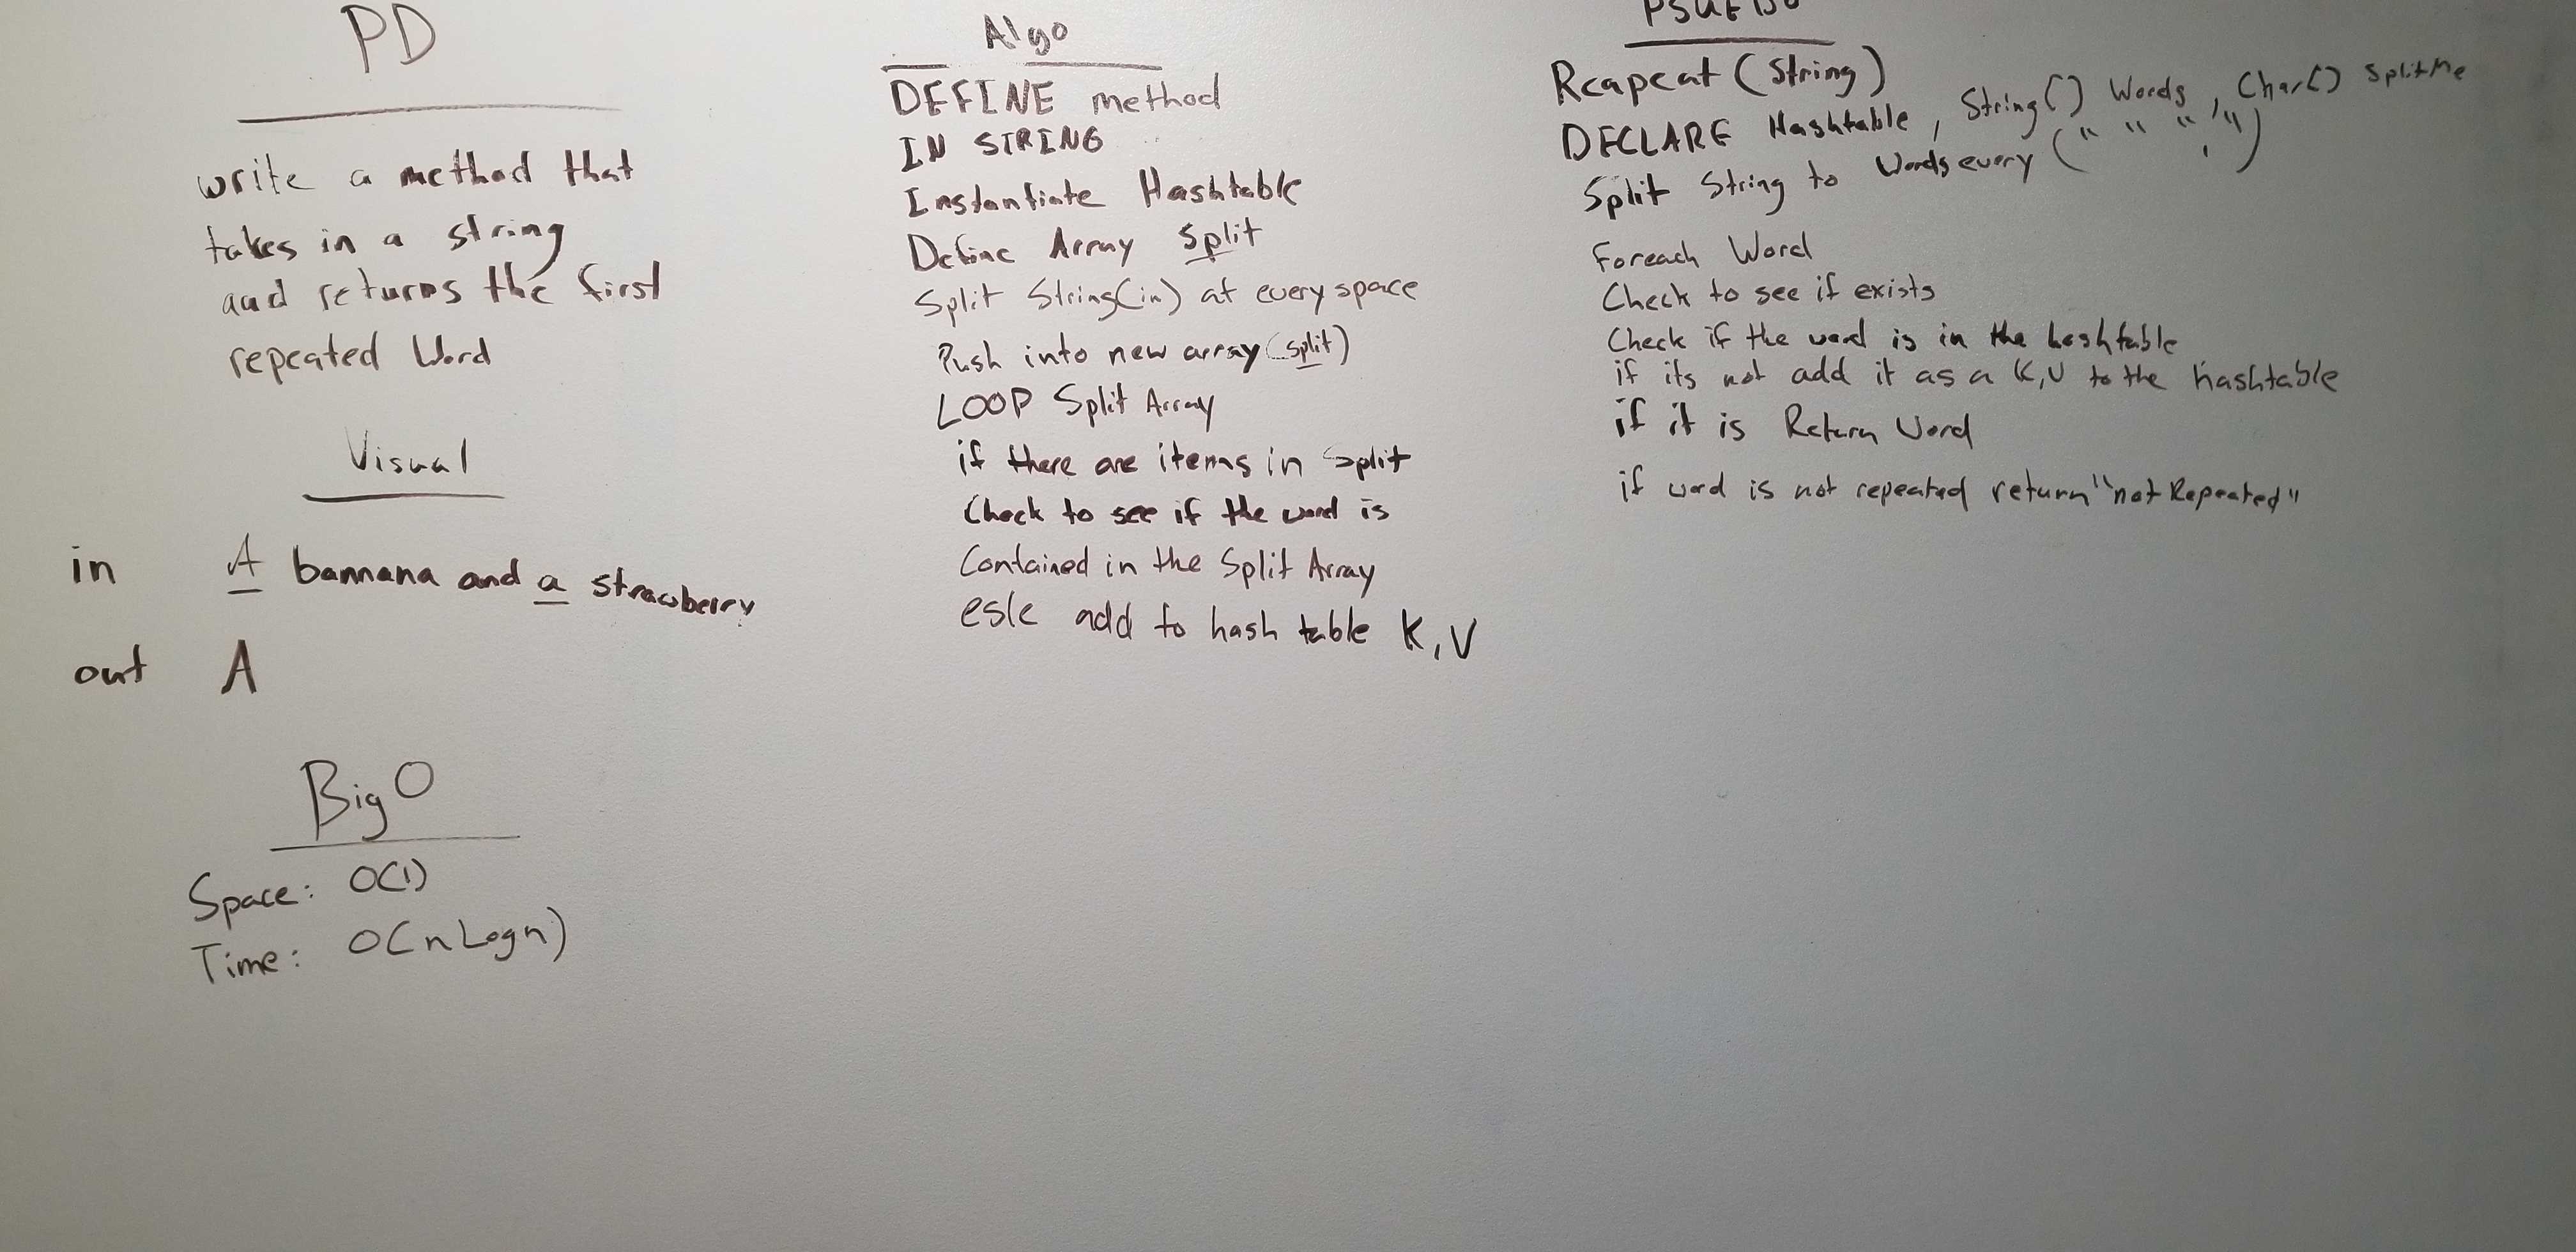 PD
write a method that
takes in a string
and returns the first
repeated Word
Visual
in A bannana and a strawberry
out A
Big O
Space: O(1)
Time: O(n Log n)
Algo
DEFINE method
IN STRING
Instantiate Hashtable
Define Array Split
Split String(in) at every space
Push into new array (split)
LOOP Split Array
if there are items in Split
Check to see if the word is
Contained in the Split Array
esle add to hash table K,V
PSUEDO
Reapeat (String)
DECLARE Hashtable, String[] Words, Char[] SplitMe
Split String to Words every (" " ",")
Foreach Word
Check to see if exists
Check if the word is in the hashtable
if its not add it as a K,V to the hashtable
if it is Return Word
if word is not repeated return "not Repeated"